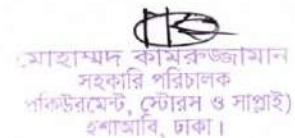 মোহাম্মদ কামরুজ্জামান
সহকারি পরিচালক
পকিউরমেন্ট, স্টোরস ও সাপ্লাই)
হশাআবি, ঢাকা।